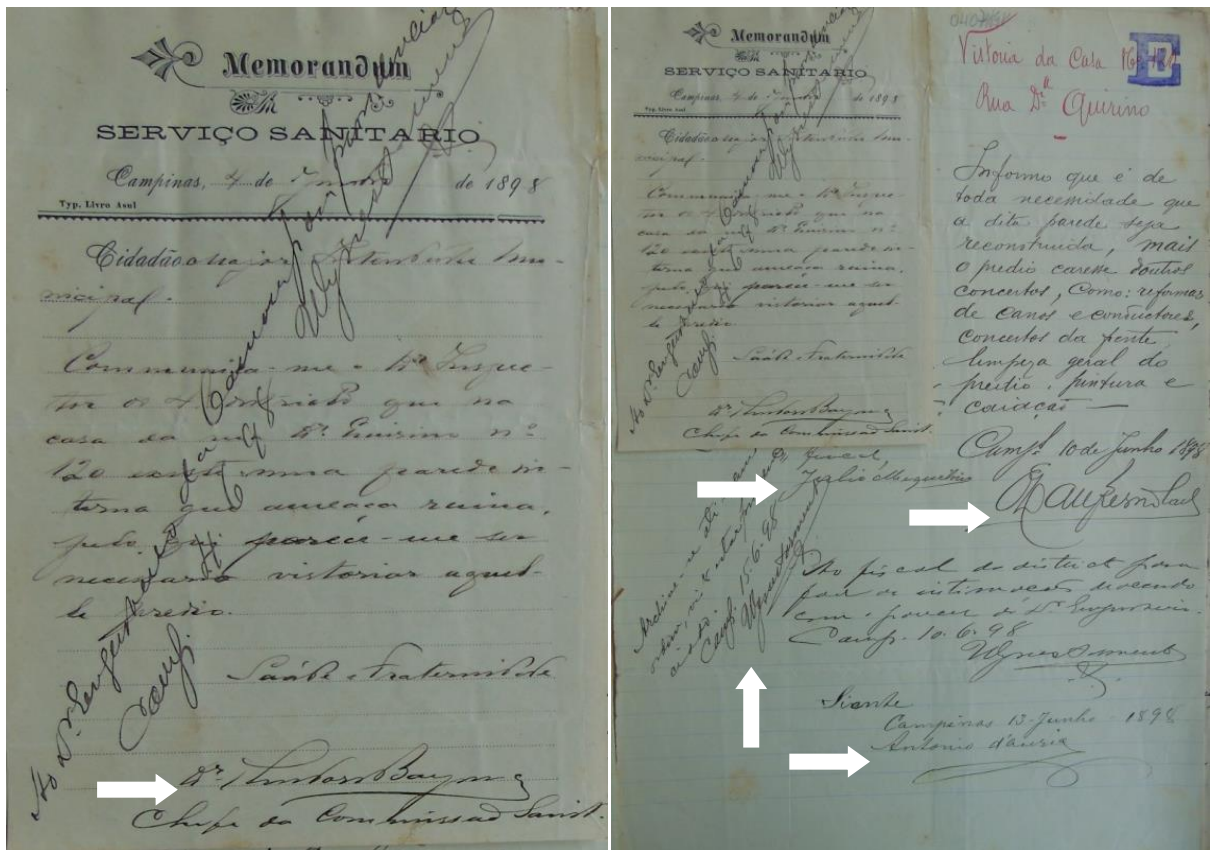 Memorandum
SERVIÇO SANITARIO
Campinas, 7 de Junho de 1898
Typ. Livro Azul
Cidadão Major Intendente Mu-
nicipal.
Communica-me o
tor do 4º districto que na
casa da rua Dr. Quirino nº
120 existe uma parede in-
terna que ameaça ruina,
pelo que parece-me ser
necessario vistoriar aquel-
le predio.
Saúde e Fraternidade
Dr.
Chefe da Commissão Sanit.
Ao Dr. Engenheiro da Camara para providenciar
Camp. 7 6 98
Memorandum
SERVIÇO SANITARIO
Campinas, 7 de Junho de 1898
Typ. Livro Azul
Cidadão Major Intendente Mu-
nicipal.
Communica-me o
tor do 4º districto que na
casa da rua Dr. Quirino nº
120 existe uma parede in-
terna que ameaça ruina,
pelo que parece-me ser
necessario vistoriar aquel-
le predio
Saúde e Fraternidade
Dr.
Chefe da Commissão Sanit.
Ao Dr. Engenheiro
Camp.
Vistoria da Casa
E
Rua Dr. Quirino
Informo que é de
toda necessidade que
a dita parede seja
reconstruida, mais
o predio caresse doutros
concertos, Como: reformas
de canos e conductores,
concertos da frente
limpeza geral do
predio, pintura e
caiação —
Camp. 10 de Junho 1898
O Fiscal,
Julio
Ao fiscal do districto para
fazer as intimações de accordo
com o parecer do Dr. Engenheiro.
Camp. 10.6.98
Archive-se
Camp. 15.6.98
Siente
Campinas 13 Junho 1898
Antonio d'auria